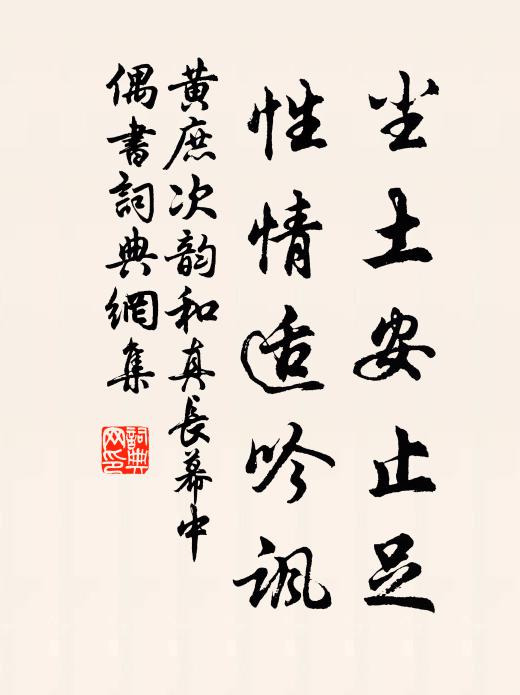 尘土安止足
性情适吟讽
黄庶次韵和真长幕中
偶書詞典網集
詞典网印